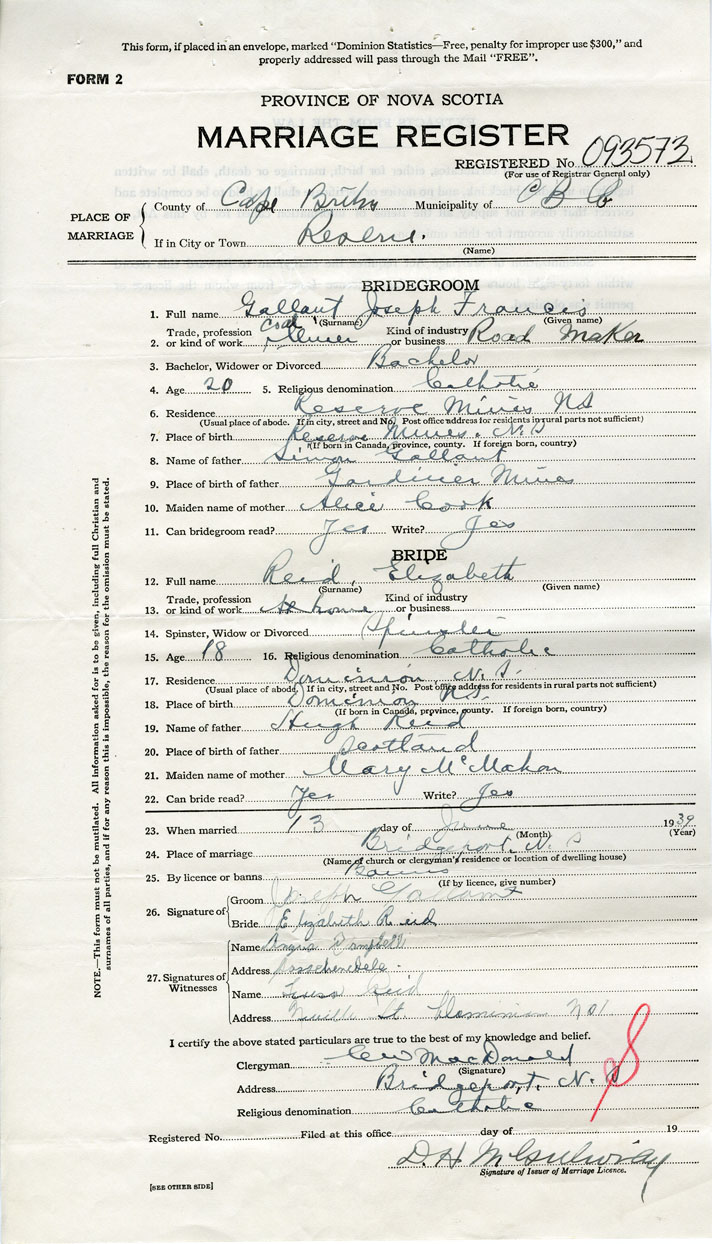 This form, if placed in an envelope, marked "Dominion Statistics—Free, penalty for improper use $300," and
properly addressed will pass through the Mail "FREE".
FORM 2
PROVINCE OF NOVA SCOTIA
MARRIAGE REGISTER
REGISTERED No. 093573
(For use of Registrar General only)
PLACE OF MARRIAGE
County of Cape Breton Municipality of C B Co
If in City or Town Reserve.
(Name)
BRIDEGROOM
1. Full name Gallant Joseph Francis
(Surname) (Given name)
2. Trade, profession or kind of work Coal Miner Kind of industry or business Road Maker
3. Bachelor, Widower or Divorced Bachelor
4. Age 20 5. Religious denomination Catholic
6. Residence Reserve Mines NS
(Usual place of abode. If in city, street and No. Post office address for residents in rural parts not sufficient)
7. Place of birth Reserve Mines. N.S
(If born in Canada, province, county. If foreign born, country)
8. Name of father Simon Gallant
9. Place of birth of father Gardinier Mines
10. Maiden name of mother Alice Cook
11. Can bridegroom read? Yes Write? Yes
BRIDE
12. Full name Reid, Elizabeth
(Surname) (Given name)
13. Trade, profession or kind of work At home Kind of industry or business
14. Spinster, Widow or Divorced Spinster
15. Age 18 16. Religious denomination Catholic
17. Residence Dominion, N.S.
(Usual place of abode. If in city, street and No. Post office address for residents in rural parts not sufficient)
18. Place of birth Dominion NS.
(If born in Canada, province, county. If foreign born, country)
19. Name of father Hugh Reid
20. Place of birth of father Scotland
21. Maiden name of mother Mary McMahon
22. Can bride read? Yes Write? Yes
23. When married 13 day of June 1939
(Month) (Year)
24. Place of marriage Bridgeport, N. S
(Name of church or clergyman's residence or location of dwelling house)
25. By licence or banns Banns
(If by licence, give number)
26. Signature of
Groom Joseph Gallant
Bride Elizabeth Reid
27. Signatures of Witnesses
Name Angus Campbell
Address Passchendele.
Name Reid
Address St. Dominion No 1
I certify the above stated particulars are true to the best of my knowledge and belief.
Clergyman CW MacDonald
(Signature)
Address Bridgeport, N. S
Religious denomination Catholic
Registered No. Filed at this office day of 19
D. H McGulvray
Signature of Issuer of Marriage Licence.
[SEE OTHER SIDE]
NOTE.—This form must not be mutilated. All information asked for is to be given, including full Christian and
surnames of all parties, and if for any reason this is impossible, the reason for the omission must be stated.